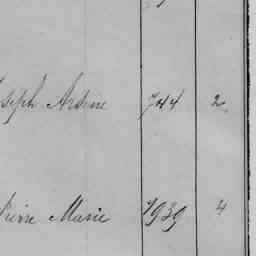 oseph Arsène 744 2
Pierre Marie 1939 4